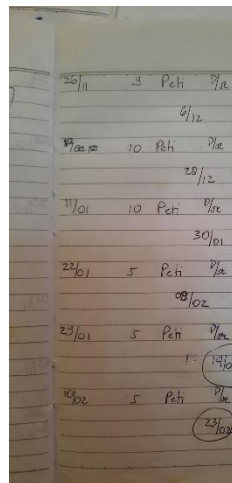 26/11 9 Peti D/sr
6/12
10 Peti D/sr
28/12
11/01 10 Peti D/sr
30/01
22/01 5 Peti D/sr
08/02
29/01 5 Peti D/sr
10/02 5 Peti D/sr
23/02